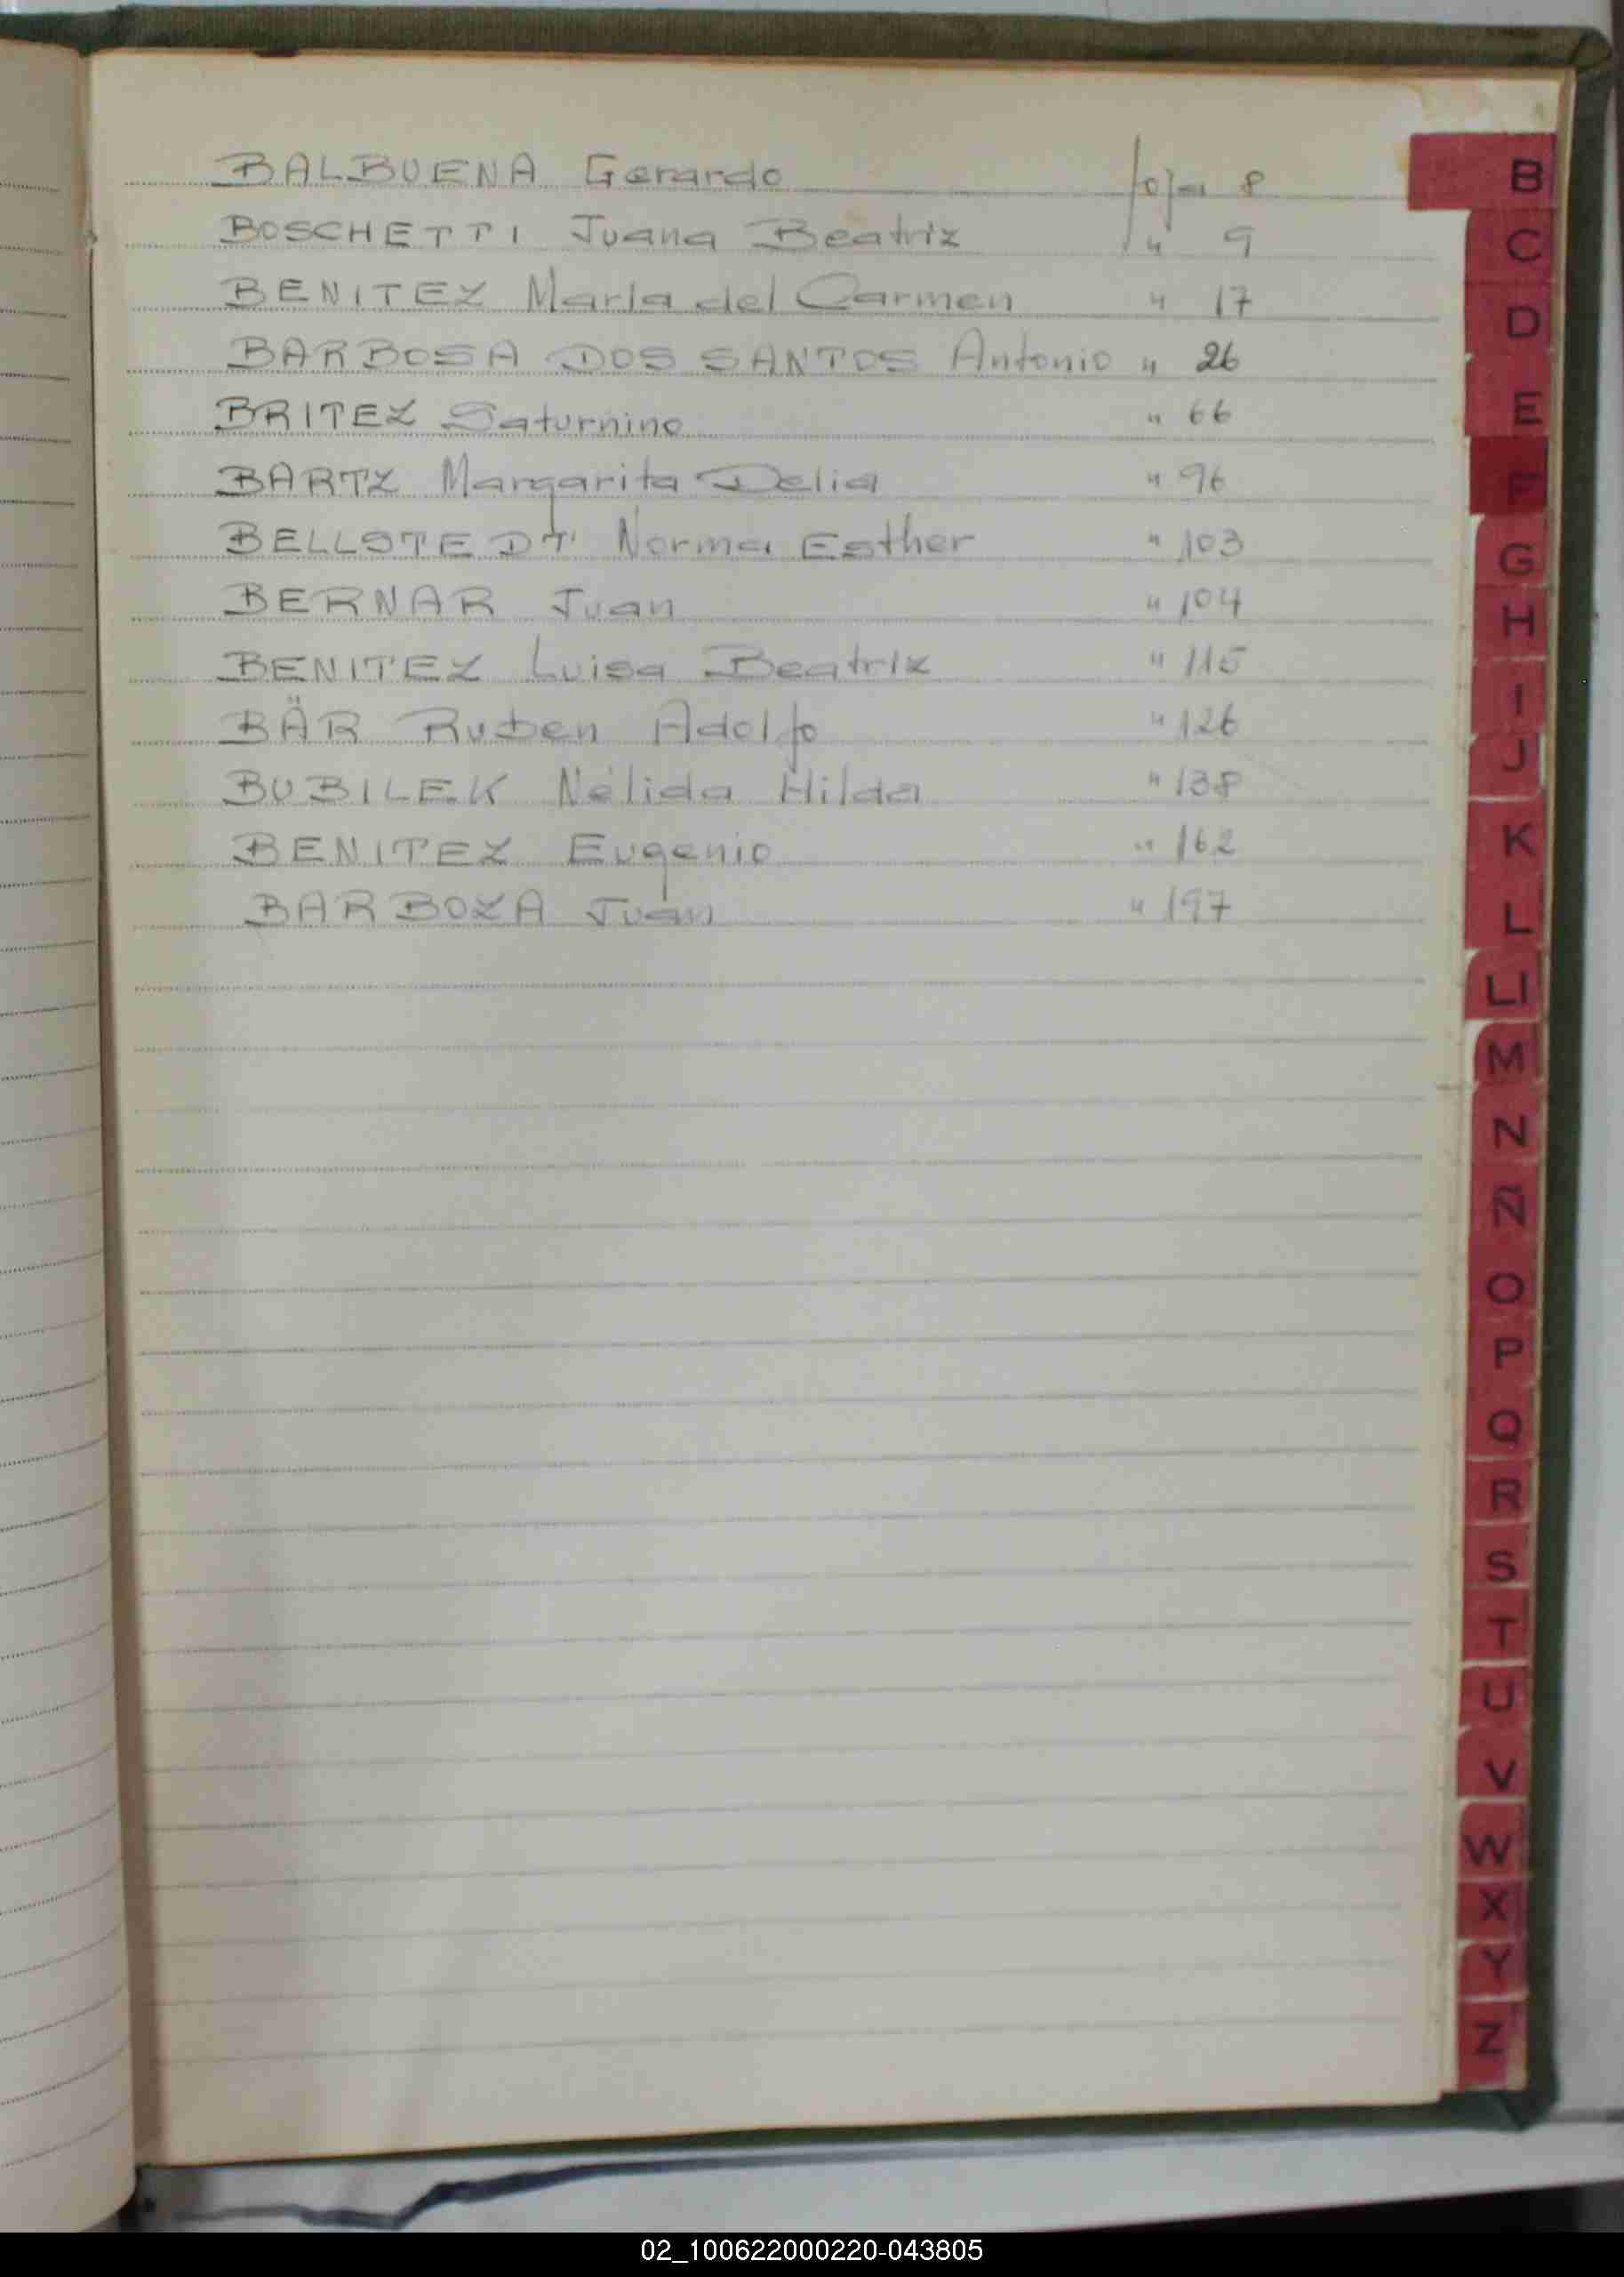 BALBUENA Gerardo foja 8
BOSCHETTI Juana Beatriz " 9
BENITEZ María del Carmen " 17
BARBOSA DOS SANTOS Antonio " 26
BRITEZ Saturnino " 66
BARTZ Margarita Delia " 96
BELLSTEDT Norma Esther " 103
BERNAR Juan " 104
BENITEZ Luisa Beatriz " 115
BÄR Ruben Adolfo " 126
BUBILEK Nélida Hilda " 138
BENITEZ Eugenio " 162
BARBOZA Juan " 197
B
C
D
E
F
G
H
I
J
K
L
Ll
M
N
Ñ
O
P
Q
R
S
T
U
V
W
X
Y
Z
02_100622000220-043805